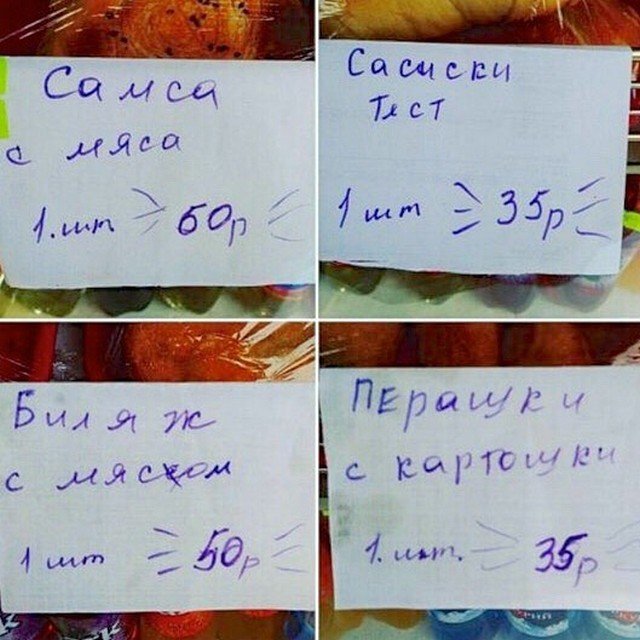 Самса
с мяса
1.шт 60р
Сасиски
Тест
1 шт 35р
Биляж
с мясом
1 шт 50р
Перашки
с картошки
1.шт. 35р